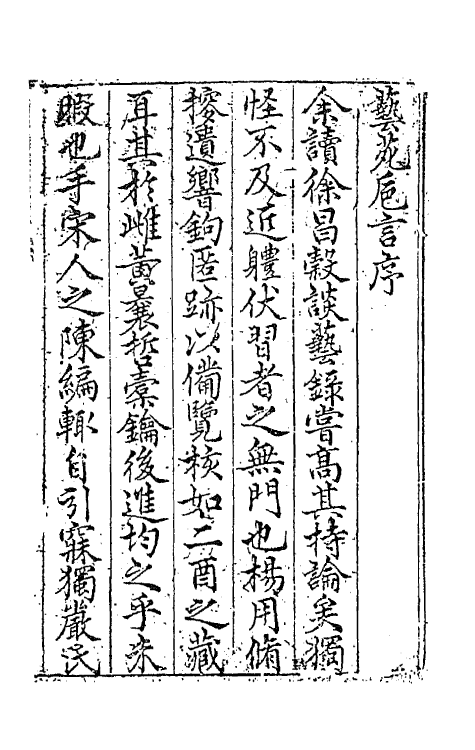 藝苑巵言序
余讀徐昌穀談藝錄嘗高其持論矣獨
怪不及近體伏習者之無門也楊用脩
搜遺響鉤匿跡以備覽核如二酉之藏
耳其於雌黃曩哲橐鑰後進均之乎未
暇也手宋人之陳編輒自引寐獨嚴氏